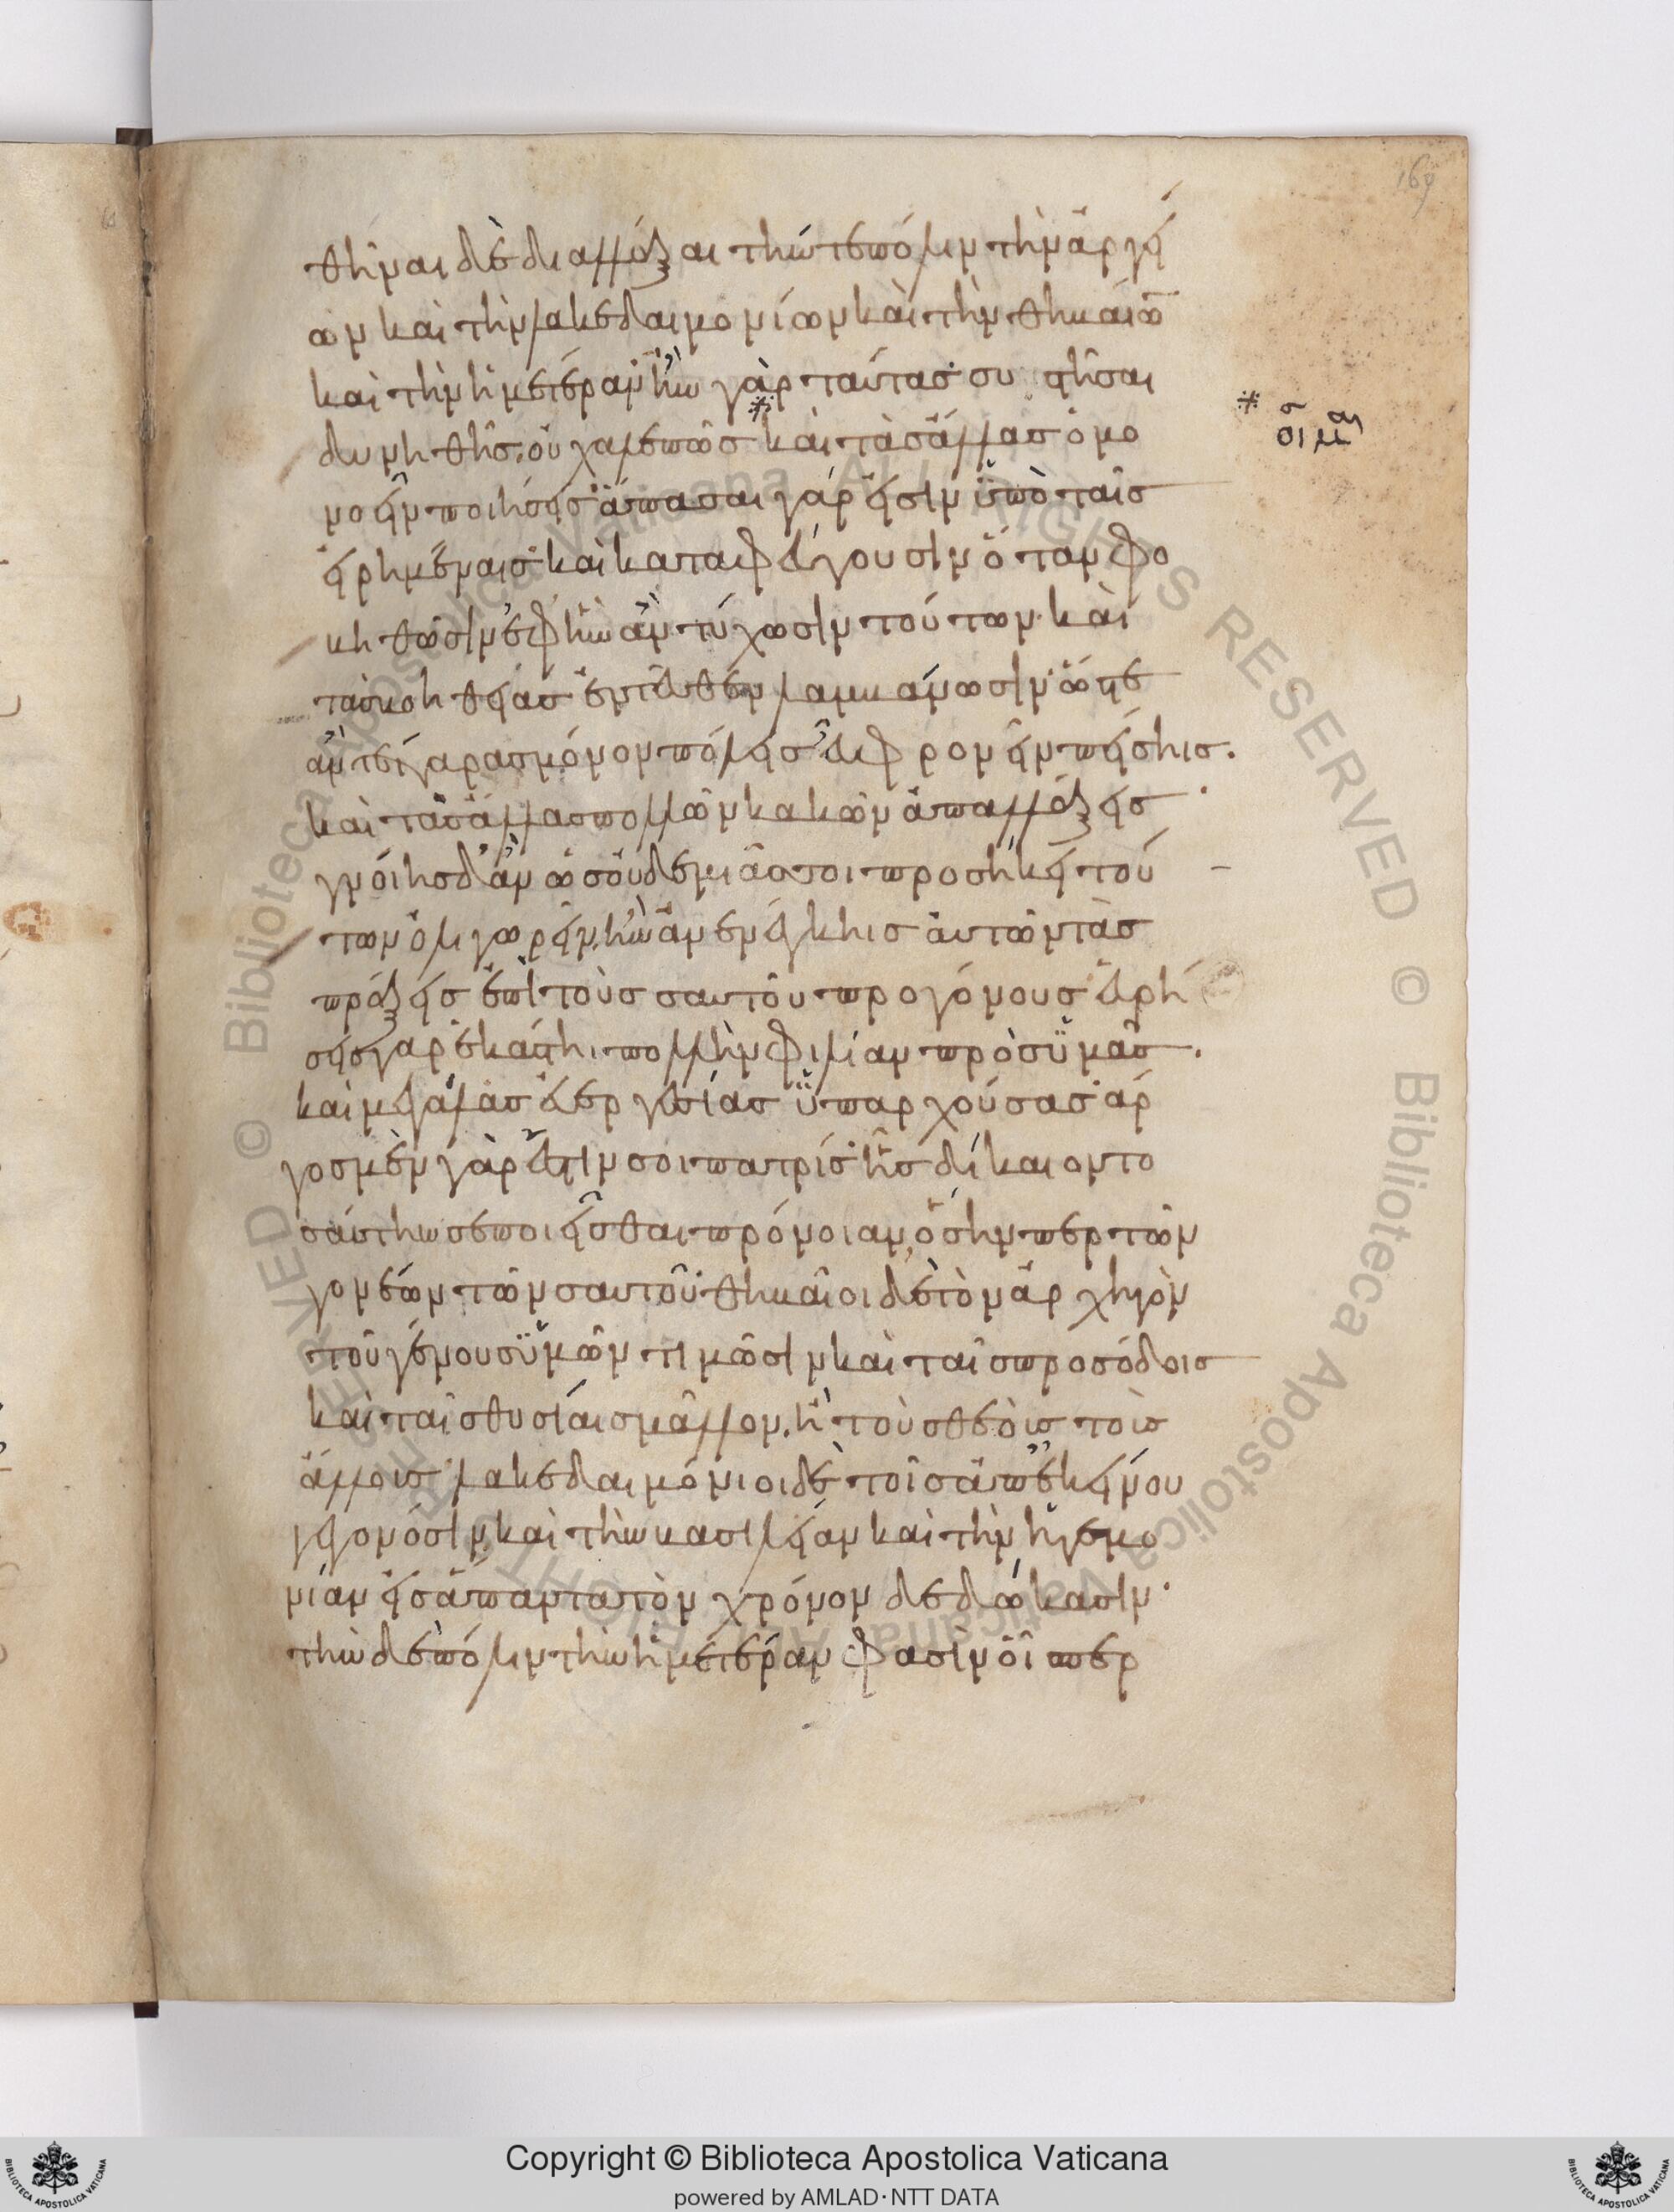 169
θῆναι δὲ διαλλάξαι τήν τε πόλιν τὴν ἀργεί
ων καὶ τὴν λακεδαιμονίων καὶ τὴν θηβαίων
καὶ τὴν ἡμετέραν· ἢν γὰρ ταύτας συστῆσαι
δυνηθῆς, οὐ χαλεπῶς καὶ τὰς ἄλλας ὁμο
* οἶμαι
νοεῖν ποιήσεις· ἅπασαι γάρ εἰσιν ὑπὸ ταῖς
εἰρημέναις· καὶ καταφεύγουσιν ὅταν φο
βηθῶσιν ἐφ' ἣν ἂν τύχωσιν τούτων· καὶ
τὰς βοηθείας ἐντεῦθεν λαμβάνωσιν· ὥστε
ἂν τέτταρας μόνον πόλεις εὖ φρονεῖν πείσηις.
καὶ τὰς ἄλλας πολλῶν κακῶν ἀπαλλάξεις·
γνοίης δ' ἂν ὡς οὐδεμιᾶς σοι προσήκει τού
των ὀλιγωρεῖν, ἢν ἀνενέγκηις αὐτῶν τὰς
πράξεις ἐπὶ τοὺς σαυτοῦ προγόνους· εὑρή
σεις γὰρ ἑκάστηι πολλὴν φιλίαν πρὸς ὑμᾶς.
καὶ μεγάλας εὐεργεσίας ὑπαρχούσας· ἄρ
γος μὲν γάρ ἐστιν σοι πατρίς· ἧς δίκαιον το
σαύτην σε ποιεῖσθαι πρόνοιαν, ὅσην περ τῶν
γονέων τῶν σαυτοῦ· θηβαῖοι δὲ τὸν ἀρχηγὸν
τοῦ γένους ὑμῶν τιμῶσιν καὶ ταῖς προσόδοις
καὶ ταῖς θυσίαις μᾶλλον, ἢ τοὺς θεοὺς τοὺς
ἄλλους· λακεδαιμόνιοι δὲ τοῖς ἀπ' ἐκείνου
γεγονόσιν, καὶ τὴν βασιλείαν καὶ τὴν ἡγεμο
νίαν εἰς ἅπαντα τὸν χρόνον δεδώκασιν·
τὴν δὲ πόλιν τὴν ἡμετέραν φασὶν οἷπερ
Copyright © Biblioteca Apostolica Vaticana
powered by AMLAD·NTT DATA